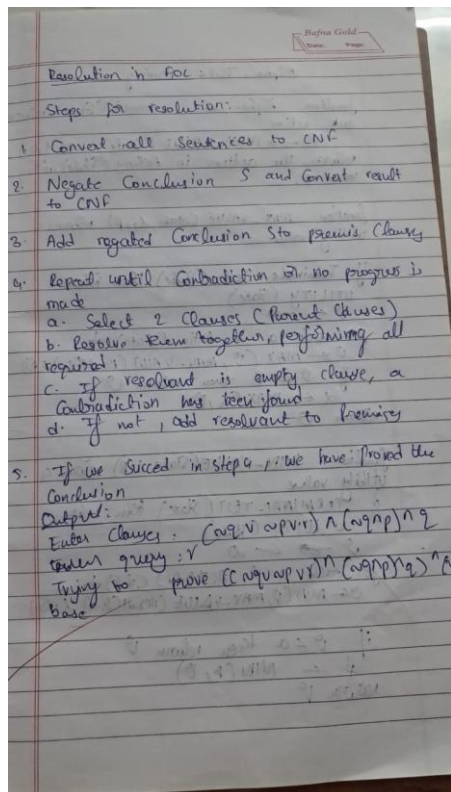 Bafna Gold
Date: Page:
Resolution in FOL
Steps for resolution:
1. Convert all sentences to CNF
2. Negate Conclusion S and Convert result
to CNF
3. Add negated Conclusion S to premis Clauses
4. Repeat until Contradiction or no progress is
made
a. Select 2 Clauses (Parent Clauses)
b. Resolve them together, performing all
required
c. If resolvant is empty clause, a
Contradiction has been found
d. If not, add resolvant to Premises
5. If we Succed in Step 4, we have proved the
Conclusion
Output:
Enter Clauses: (~q v ~p v r) ^ (~q ^ p) ^ q
query: r
Trying to prove ((~q v ~p v r) ^ (~q ^ p) ^ q) ^ (
base